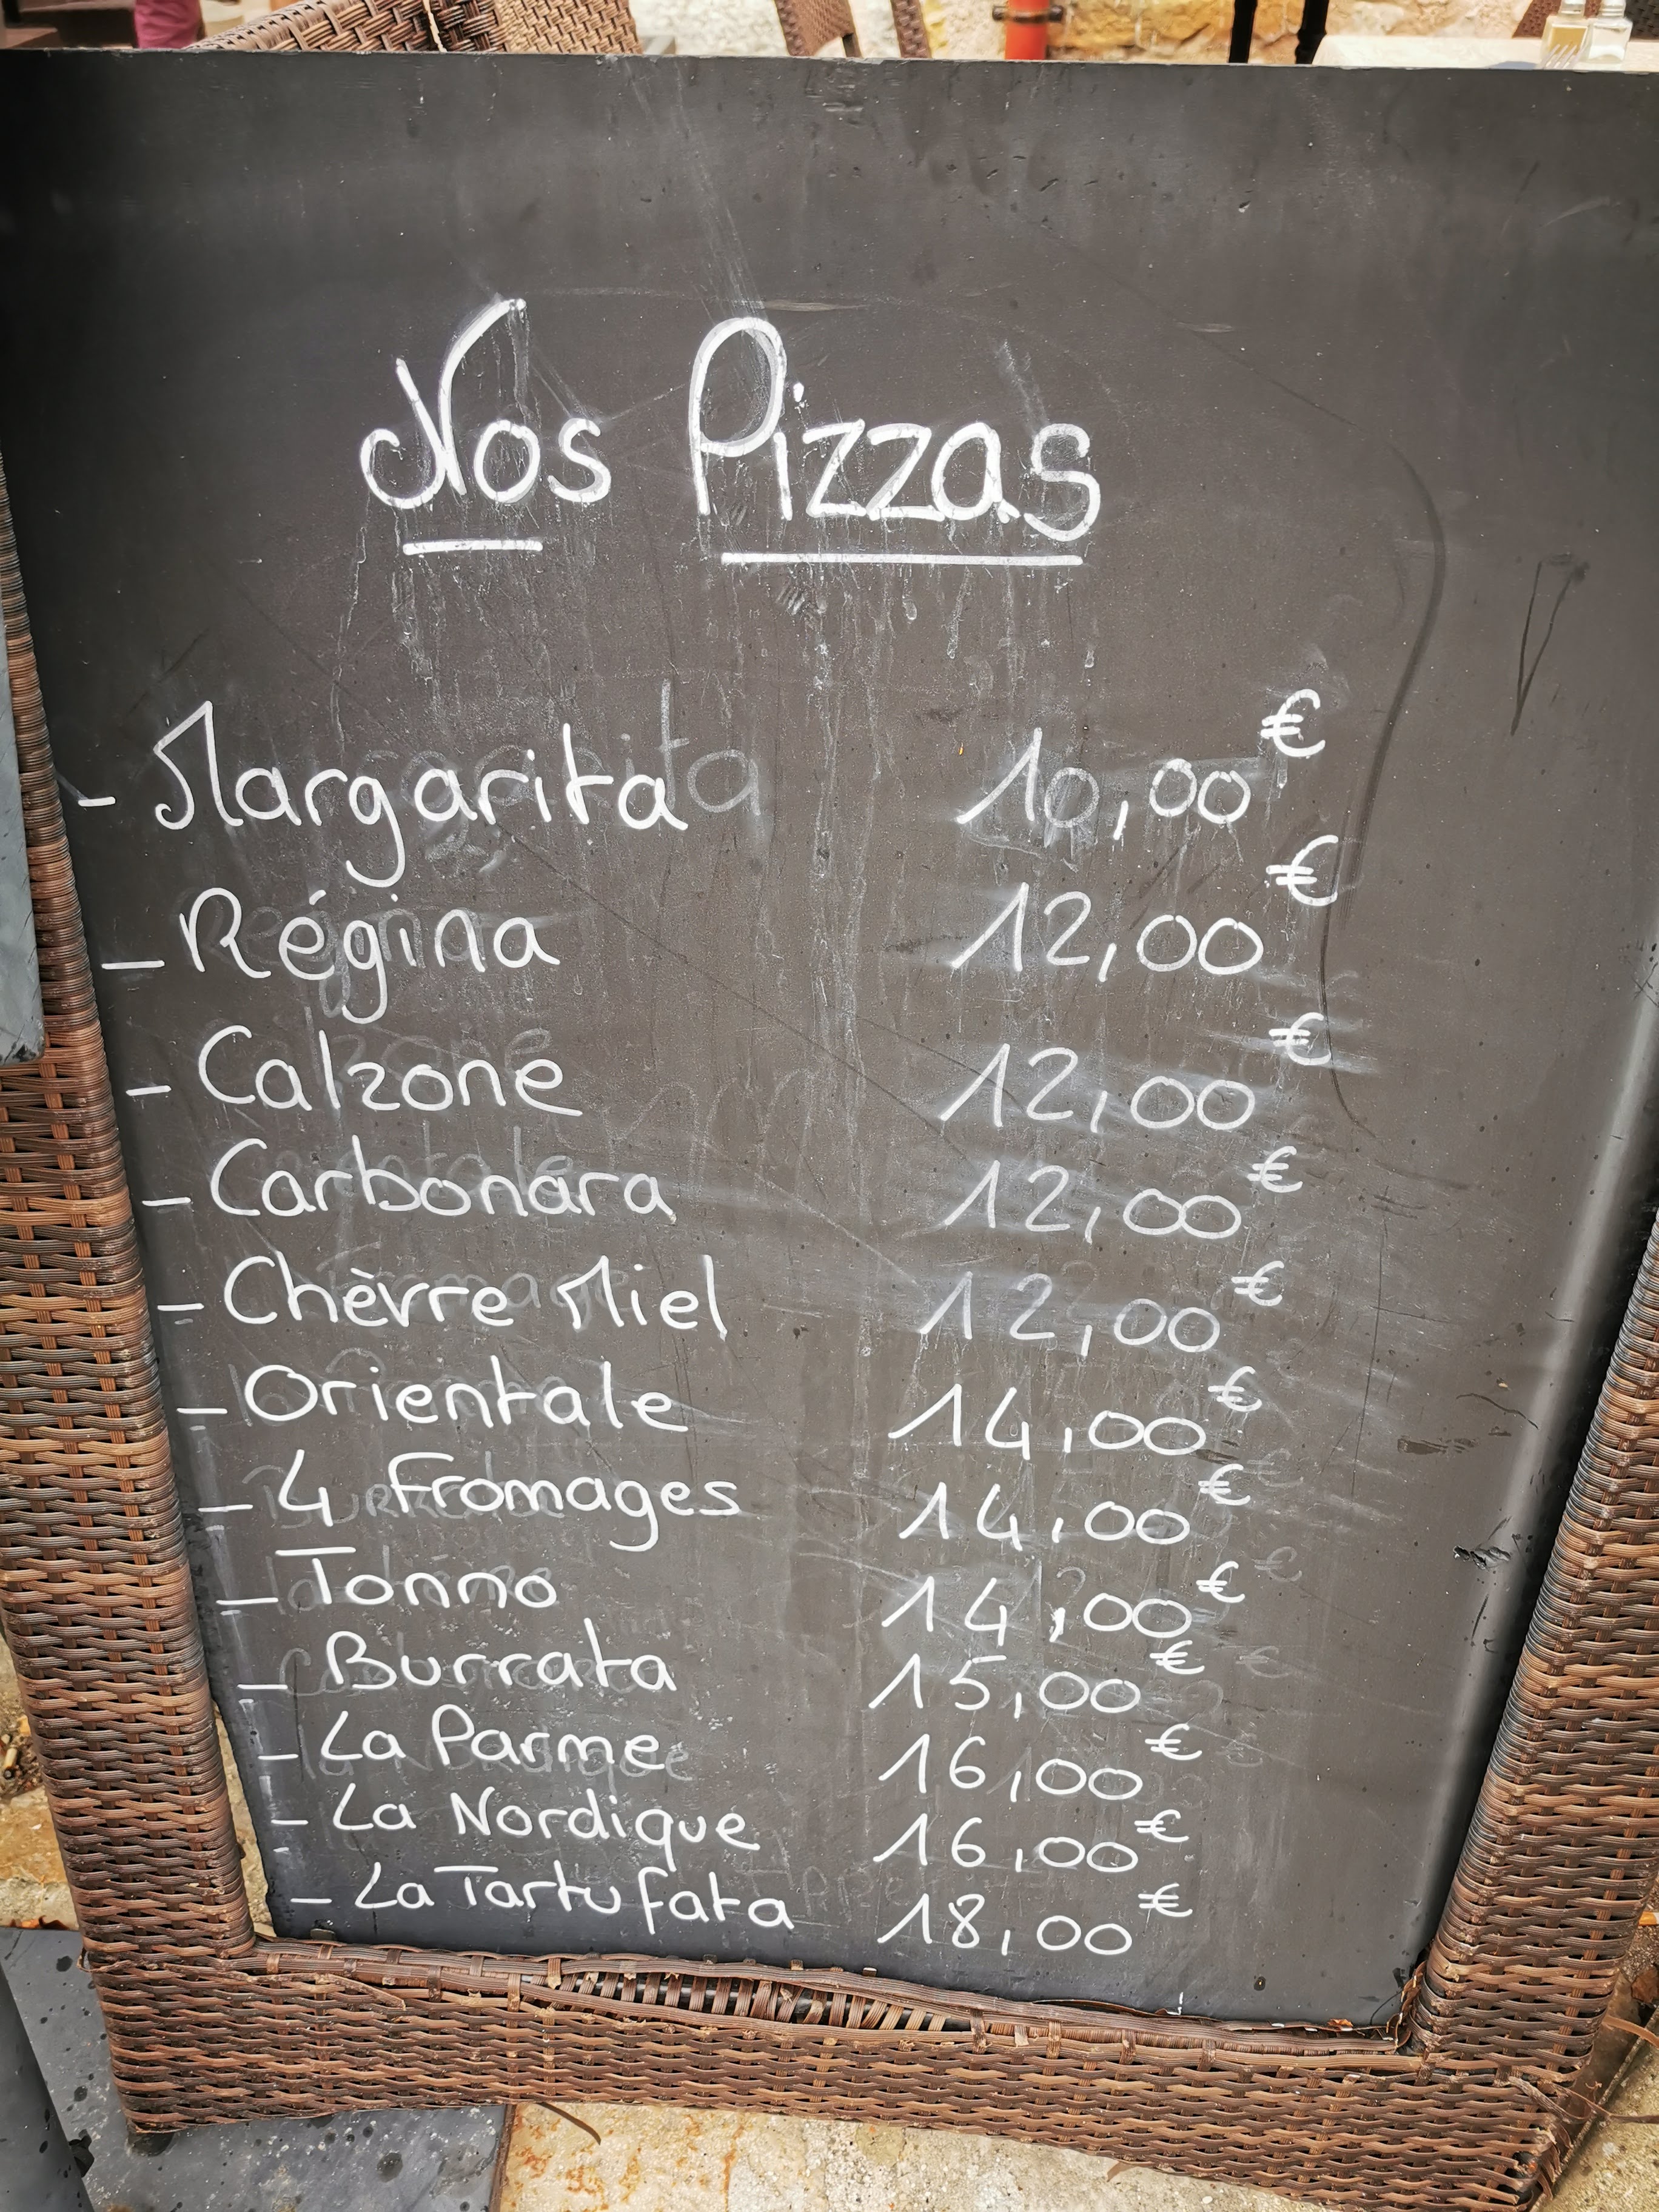 Nos Pizzas
- Margarita 10,00€
- Régina 12,00€
- Calzone 12,00€
- Carbonara 12,00€
- Chèvre Miel 12,00€
- Orientale 14,00€
- 4 Fromages 14,00€
- Tonno 14,00€
- Burrata 15,00€
- La Parme 16,00€
- La Nordique 16,00€
- La Tartufata 18,00€